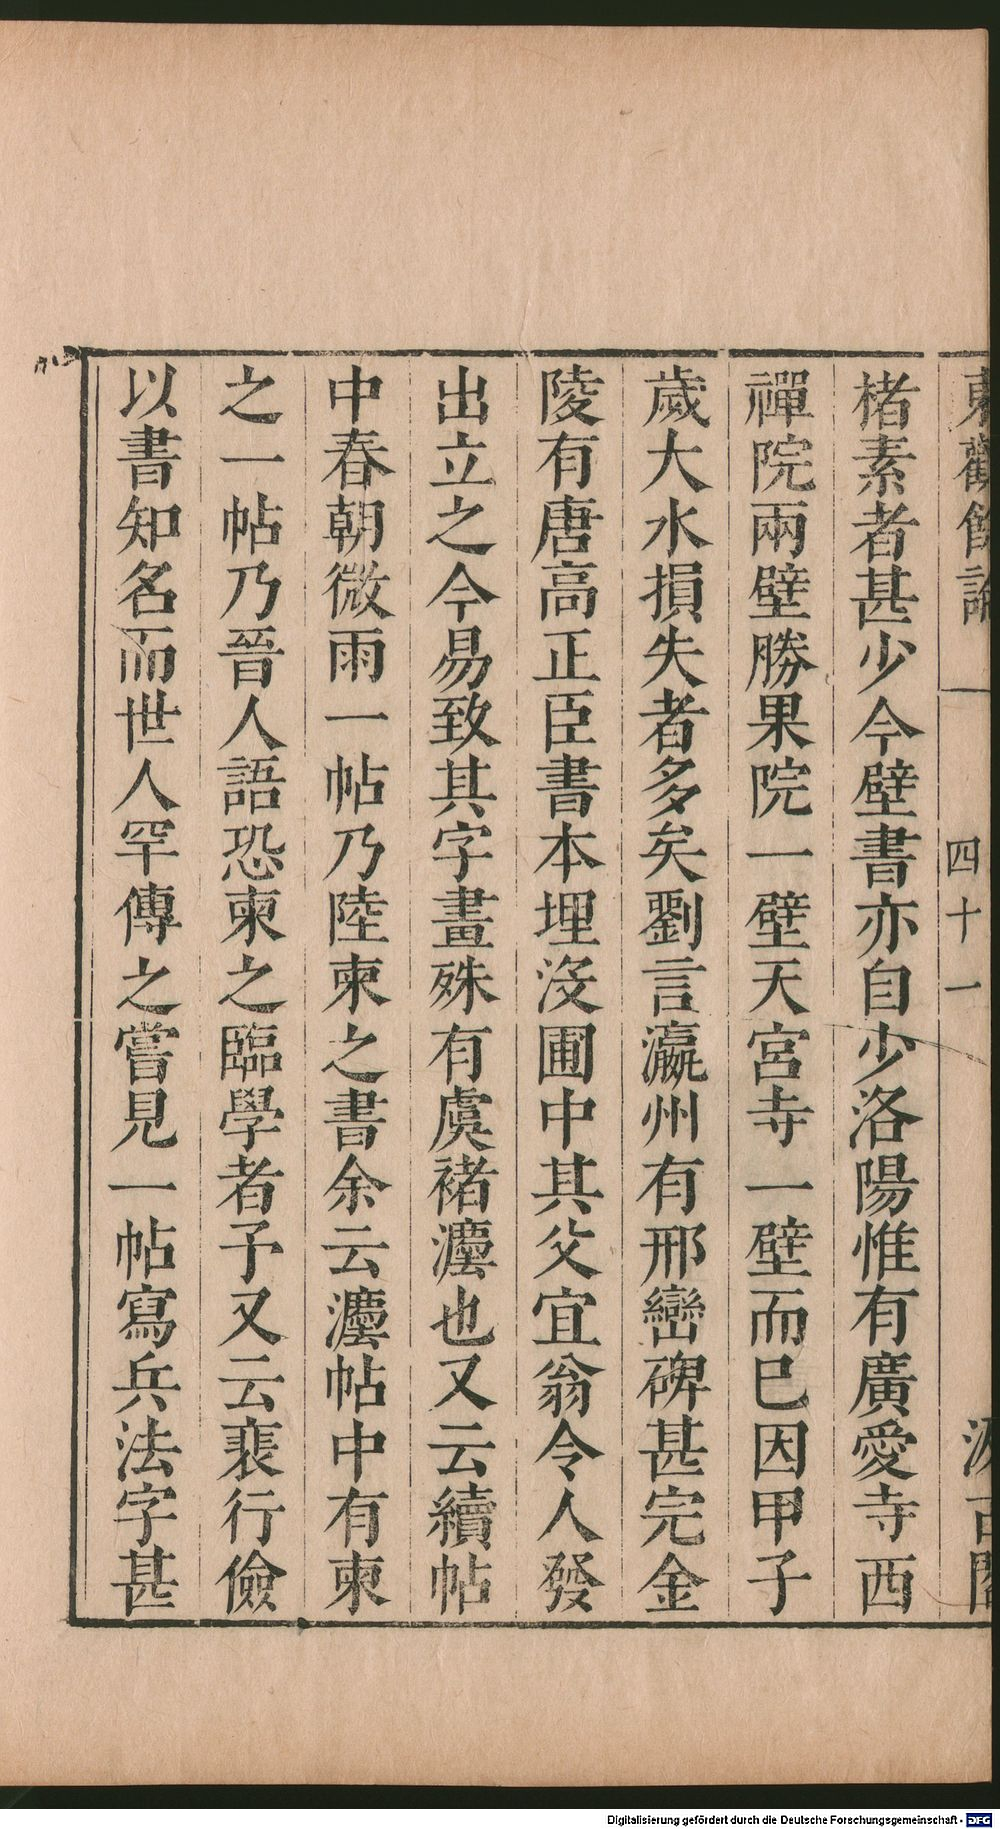 東觀餘論
四十一
汲古閣
楮素者甚少今壁書亦自少洛陽惟有廣愛寺西
禪院兩壁勝果院一壁天宮寺一壁而已因甲子
歲大水損失者多矣劉言瀛州有邢巒碑甚完金
陵有唐高正臣書本埋沒圃中其父宜翁令人發
出立之今易致其字畫殊有虞褚灋也又云續帖
中春朝微雨一帖乃陸柬之書余云灋帖中有柬
之一帖乃晉人語恐柬之臨學者予又云裴行儉
以書知名而世人罕傳之嘗見一帖寫兵法字甚
Digitalisierung gefördert durch die Deutsche Forschungsgemeinschaft - DFG